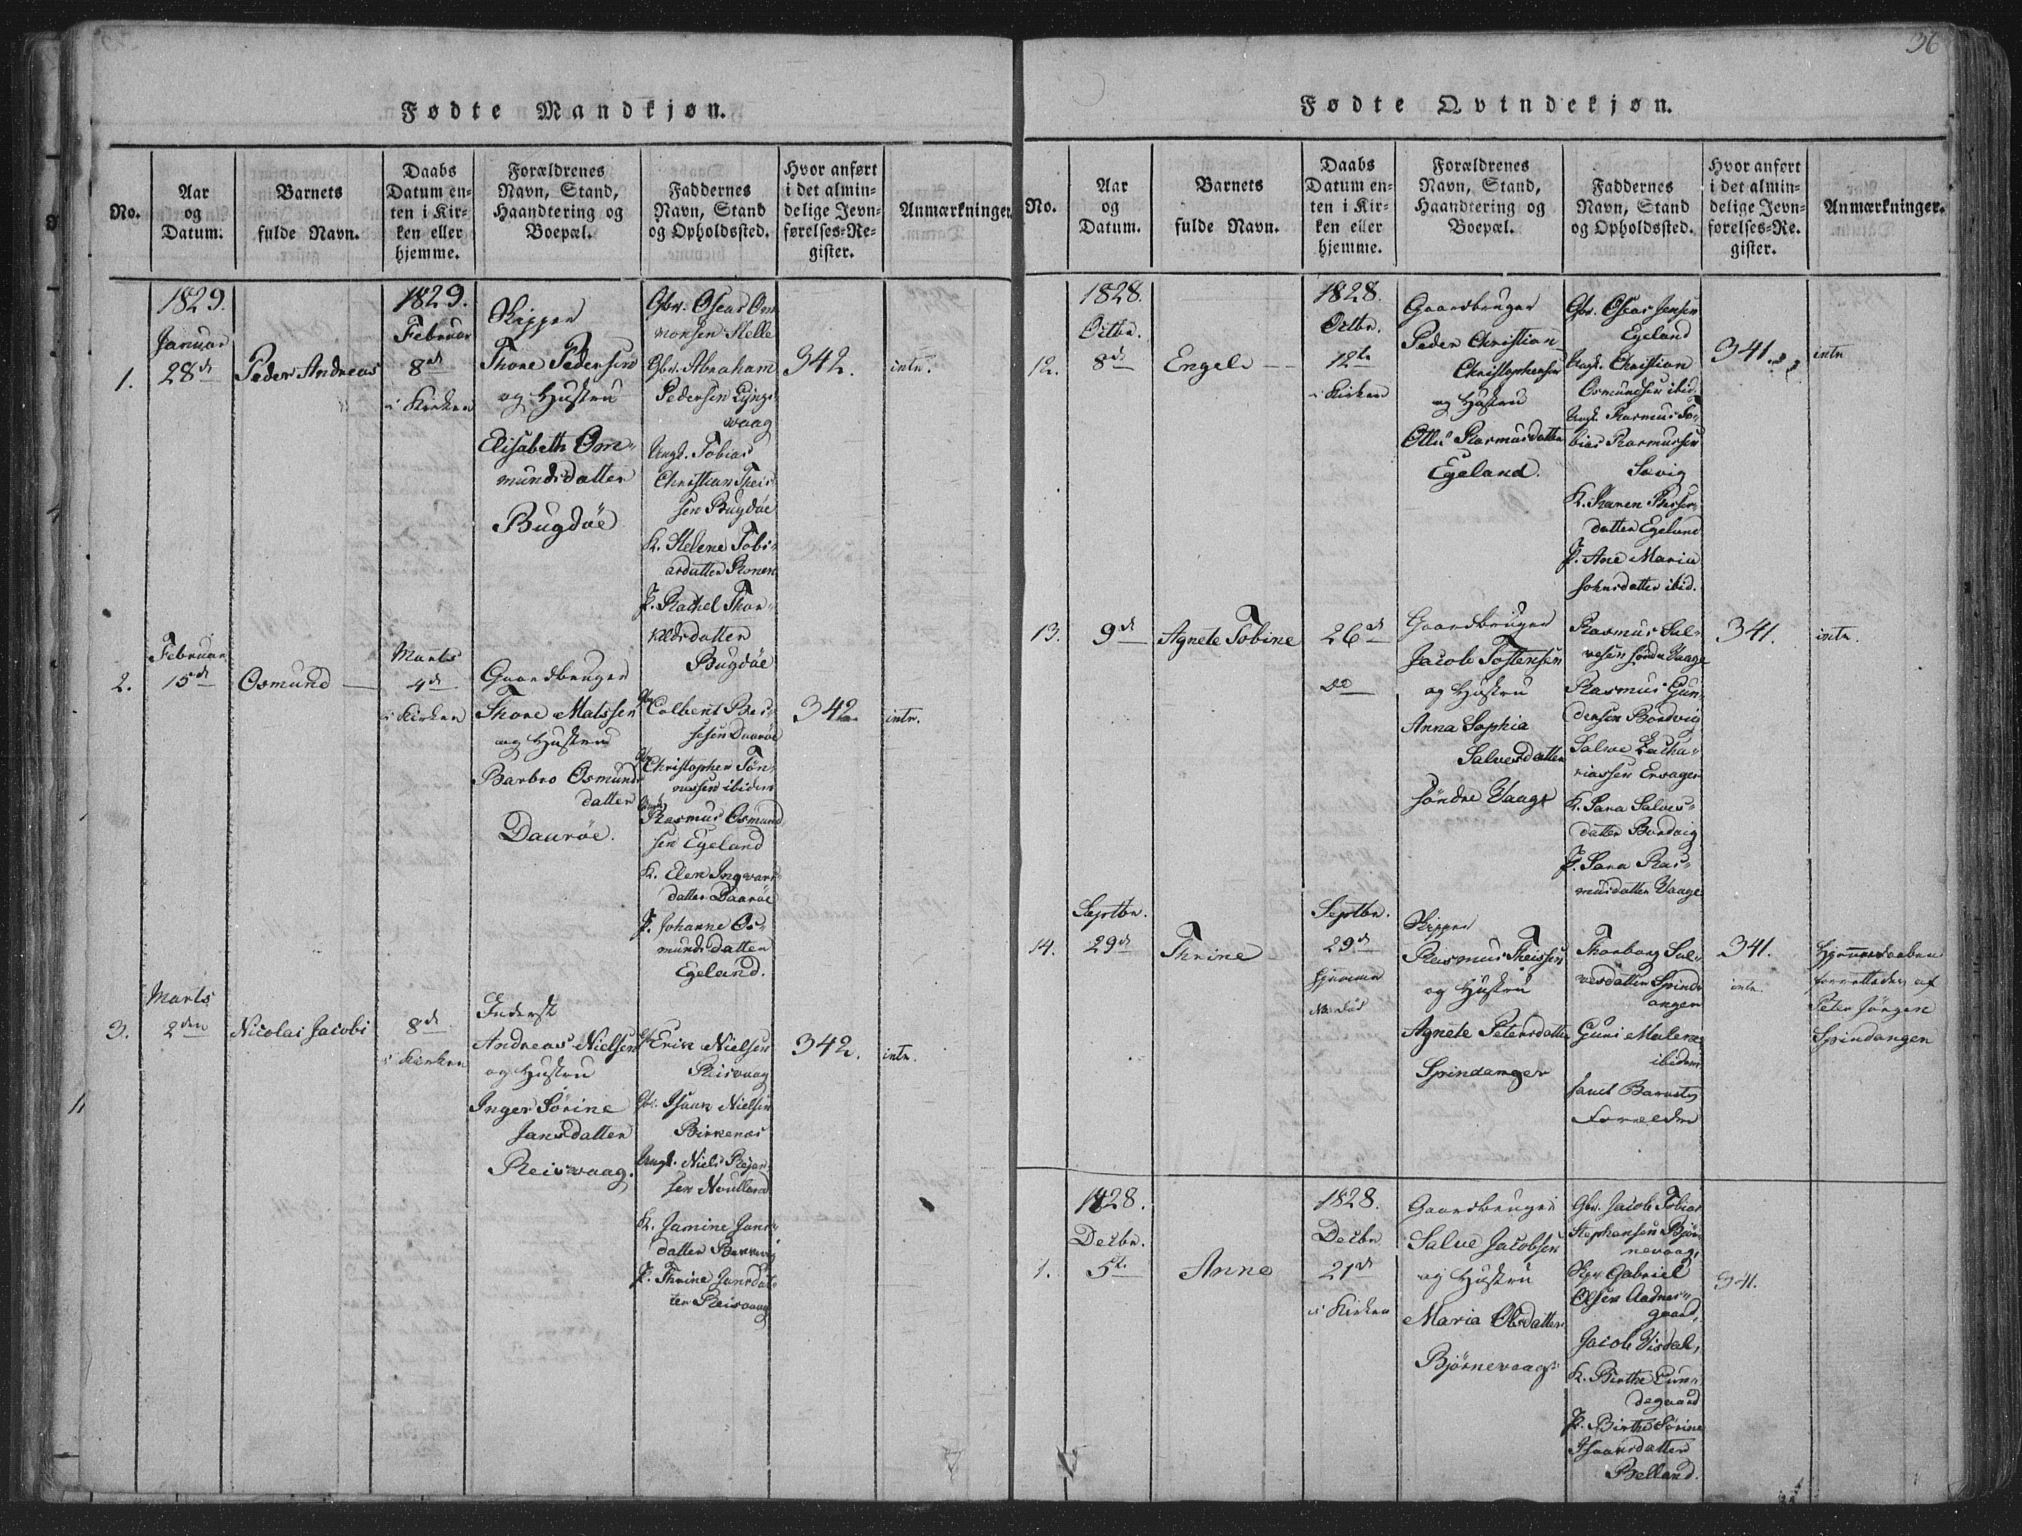 36
Fødte Mandkjøn.
No.
Aar
og
Datum.
Barnets
fulde Navn.
Daabs
Datum en-
ten i Kir-
ken eller
hjemme.
Forældrenes
Navn, Stand,
Haandtering og
Boepæl.
Faddernes
Navn, Stand
og Opholdssted.
Hvor anført
i det almin-
delige Jevn-
førelses-Re-
gister.
Anmærkninger.
1.
1829.
Januar
28de
Peder Andreas
1829.
Februar
8de
i Kirken
Skipper
Thore Pedersen
og Hustru
Elisabeth Om-
mundsdatter
Bugdøe
Gbr. Oscar Om
monsen Helle
Gbr. Abraham
Pedersen Lyngs-
vaag
Ungk. Tobias
Christian Theis-
sen Bugdøe
K. Helene Tobi-
asdatter Ronen
P. Rachel Thor-
kildsdatter
Bugdøe
342.
intr.
2.
Februar
15de
Osmund
Marts
4de
i Kirken
Gaardbruger
Thore Matssen
og Hustru
Barbro Osmunds
datter
Daarøe.
Gbr. Colbent
Daarøe
Gbr. Christopher Tøn-
nessen ibidem
Ungk. Rasmus Osmund
sen Egeland
K. Elen Ingvars-
datter Daarøe
P. Johanne Os-
mundsdatter
Egeland.
342.
intr.
3.
Marts
2den
Nicolai Jacobi
8de
i Kirken
Inderst
Andreas Nielsen
og Hustru
Inger Sørine
Jansdatter
Reisvaag.
Gbr. Erik Nielsen
Reisvaag
Gbr. Isaak Nielsen
Birkenes
Ungk. Niels Rejer-
sen
K. Jamine Jans-
datter
P. Thrine Jansdat-
ter Reisvaag
342.
intr.
Fødte Qvindekjøn.
No.
Aar
og
Datum.
Barnets
fulde Navn.
Daabs
Datum en-
ten i Kir-
ken eller
hjemme.
Forældrenes
Navn, Stand,
Haandtering og
Boepæl.
Faddernes
Navn, Stand
og Opholdssted.
Hvor anført
i det almin-
delige Jevn-
førelses-Re-
gister.
Anmærkninger.
12.
1828.
Octbr.
8de
Engel
1828.
Octbr.
12te
i Kirken
Gaardbruger
Peder Christian
Christophersen
og Hustru
Rasmusdatter
Egeland.
Gbr. Oscar Jensen
Egeland
Ungk. Christian
Osmundsen ibid.
Ungk. Rasmus To-
bias Rasmussen
Sævig
K. Karen
datter Egeland
P. Ane Maria
Johnsdatter ibid.
341.
intr
13.
9de
Agnete Tobine
26de
do
Gaardbruger
Jacob Tostensen
og Hustru
Anna Sophia
Salvesdatter
søndre Vaage
Rasmus Sal-
vesen søndre Vaage
Rasmus Gun-
dersen Bordvig
Salve Zacha-
riassen
K. Sara Salves-
datter Bordvig
P. Sara Ras-
musdatter Vaage
341.
intr.
14.
Septbr.
29de
Thrine
Septbr.
29de
hjemme
Skipper
Rasmus Theissen
og Hustru
Agnete Petersdatter
Spindanger
Thorborg Sal-
vesdatter Spind-
anger
Guri Malene
ibidem
samt Barnets
Forældre
341.
intr.
Hjemmedaaben
forrettedes af
Peter Jørgen
Spindangen
1.
1828.
Decbr.
5te
Anne
1828.
Decbr
21de
i Kirken
Gaardbruger
Salve Jacobsen
og Hustru
Maria Olsdatter
Bjørnevaag
Gbr. Jacob Tobias
Stephansen Bjør-
nevaag,
Skpr Gabriel
Olsen Aadnes-
gaard,
Jacob Visdal,
K. Birthe Lun-
degaard
P. Birthe Sørine
Isaaksdatter
Belland.
341.